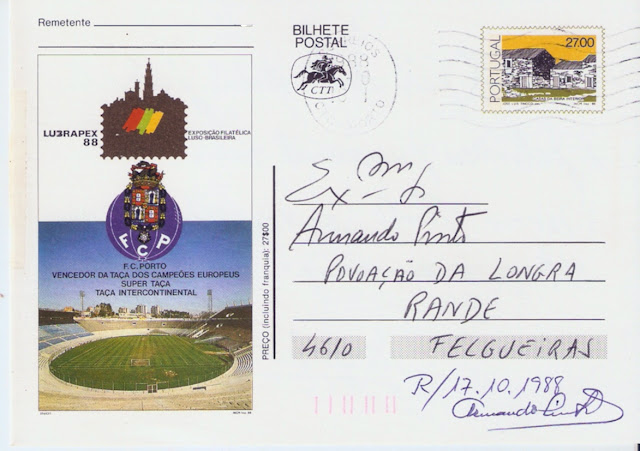 Remetente
BILHETE
POSTAL
CTT
PORTUGAL
27.00
LUBRAPEX
88
EXPOSIÇÃO FILATÉLICA
LUSO-BRASILEIRA
F C P
F.C. PORTO
VENCEDOR DA TAÇA DOS CAMPEÕES EUROPEUS
SUPER TAÇA
TAÇA INTERCONTINENTAL
PREÇO (incluindo franquia): 27$00
Armando Pinto
POVOAÇÃO DA LONGRA
RANDE
4610 FELGUEIRAS
R/17.10.1988
Armando Pinto